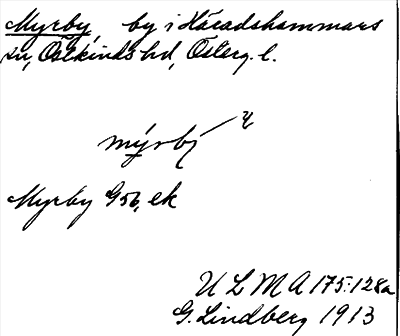 Myrby, by i Häradshammars
sn, Östkinds hd, Österg. l.
mýrbý
Myrby G56, ek
U L M A 175:128a
G. Lindberg 1913